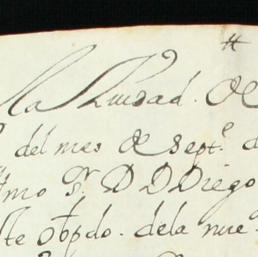 la Ciudad. de
del mes de Septe. d
mo Sr. D D Diego
ste obpdo. dela nue